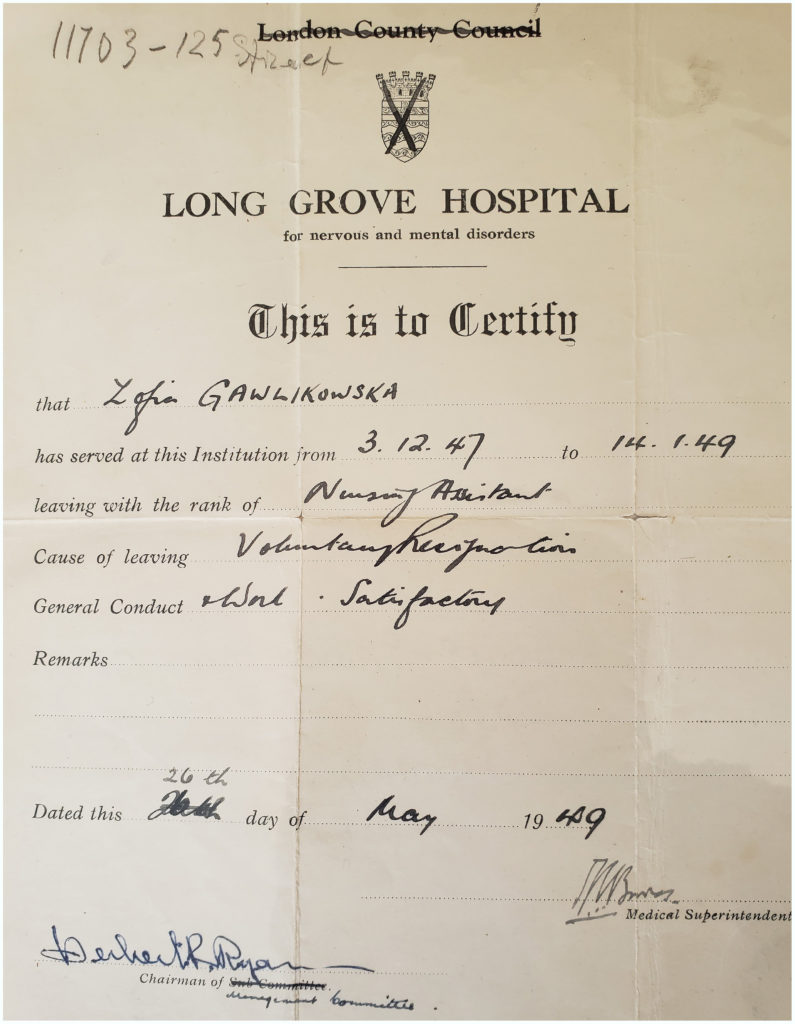 11703-125 Street
London County Council
LONG GROVE HOSPITAL
for nervous and mental disorders
This is to Certify
that Zofia GAWLIKOWSKA
has served at this Institution from 3.12.47 to 14.1.49
leaving with the rank of Nursing Assistant
Cause of leaving Voluntary Resignation
General Conduct & Work. Satisfactory
Remarks
26th
Dated this day of May 1949
Medical Superintendent
Herbert R. Ryan
Chairman of Sub Committee.
Management Committee.